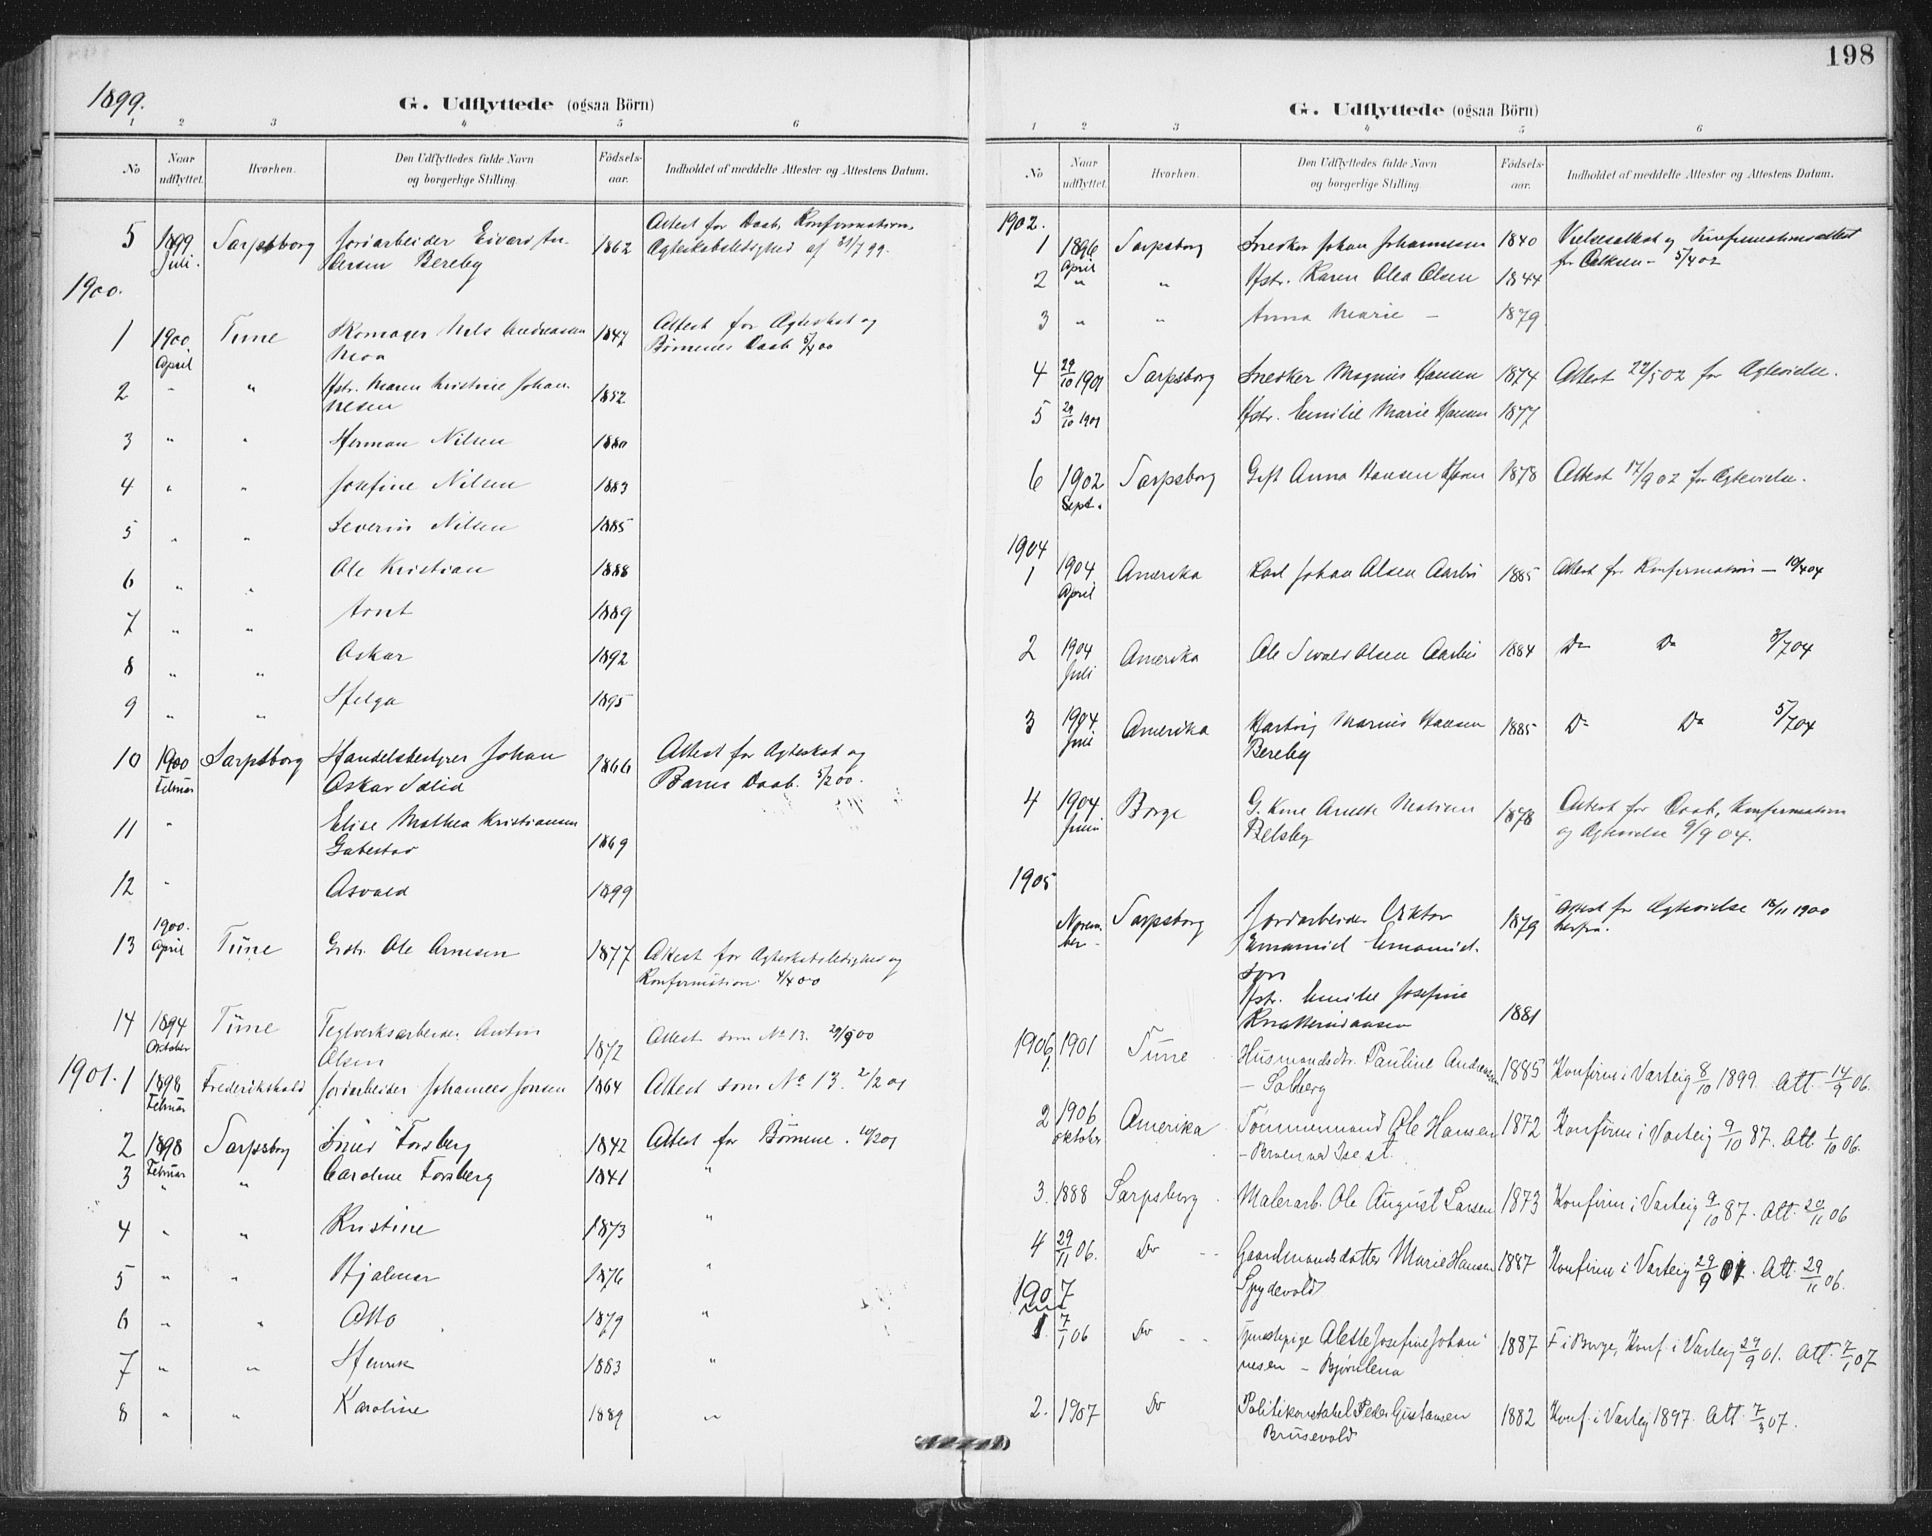 1899.
G. Udflyttede (ogsaa Börn)
1 2 3 4 5 6
No
Naar udflyttet.
Hvorhen.
Den Udflyttedes fulde Navn og borgerlige Stilling.
Födsels-aar.
Indholdet af meddelte Attester og Attestens Datum.
5 1899 Juli. Sarpsborg Jordarbeider Eivard 1862 Attest for Daab, Konfirmation,
Bereby Ægteskabsledighed af 31/7 99.
1900.
1 1900 April Tune Skomager Nils Andreassen 1847 Attest for Ægteskab og
Moa Børnenes Daab 5/4 00
2 - " Hstr. Maren Kristine Johan- 1852
nesen
3 " " Herman Nilsen 1880
4 " " Josefine Nilsen 1883
5 " " Severin Nilsen 1885
6 " " Ole Kristian 1888
7 " " Arnt 1889
8 " " Oskar 1892
9 " " Helga 1895
10 1900 Februar Sarpsborg Handelsbestyrer Johan 1866 Attest for Ægteskab og
Oskar Solid Barns Daab. 5/2 00.
11 " Elise Mathea Kristiansen
Gabestad 1869
12 " Asvald 1899
13 1900. April Tune Grdbr. Ole Arnesen 1877 Attest for Ægteskabsledighed og
Konfirmation 4/4 00
14 1894 Oktober Tune Teglverksarbeider Anton Attest som No 13. 29/9 00
Olsen 1872
1901. 1 1898 Februar Frederikshald Jordarbeider Johannes Jensen 1864 Attest som No 13. 2/2 01
2 1898 Februar Sarpsborg Smed Forsberg 1842 Attest for Børnene. 10/2 01
3 " " Caroline Forsberg 1841 "
4 " " Kristine 1873 "
5 " " Hjalmar 1876 "
6 " " Otto 1879 "
7 " " Henrik 1883 "
8 " " Karoline 1889 "
198
G. Udflyttede (ogsaa Börn)
1 2 3 4 5 6
No
Naar udflyttet.
Hvorhen.
Den Udflyttedes fulde Navn og borgerlige Stilling.
Födsels-aar.
Indholdet af meddelte Attester og Attestens Datum.
1902.
1 1896 April Sarpsborg Snedker Johan Johannesen 1840 Vielsesattest og Konfirmationsattest
for 5/4 02
2 " " Hstr. Karen Olea Olsen 1844
3 " " Anna Marie - 1879
4 29/10 1901 Sarpsborg Snedker Magnus Hansen 1874 Attest 22/5 02 for Ægtevielse.
5 29/10 1901 Hstr. Emilie Marie Hansen 1877
6 1902 Sept. Sarpsborg Gift Anna Hansen 1878 Attest 17/9 02 for Ægtevielse.
1904
1 1904 April Amerika Karl Johan Olsen Aarbu 1885 Attest for Konfirmation - 10/4 04
2 1904 Juli Amerika Ole Olsen Aarbu 1884 Do Do 3/7 04
3 1904 Juli Amerika Hartvig Marius Hansen 1885 Do Do 5/7 04
Bereby
4 1904 Juni Borge G. Kone 1878 Attest for Daab, Konfirmation
Belsby og Ægtevielse 9/9 04.
1905
Novem- Sarpsborg Jordarbeider Viktor 1879 Attest for Ægtevielse 18/11 1900
ber - Emanuel Emanuel- herfra.
son
Hstr. Emilie Josefine
1881
1906. 1901 Tune Husmandsdtr. Pauline Andreasen 1885 Konfirm. i Varteig 8/10 1899. Att. 14/9 06.
- Solberg
2 1906 Oktober Amerika Tømmermand Ole Hansen 1872 Konfirm. i Varteig 9/10 87. Att. 1/10 06.
3. 1888 Sarpsborg Malerarb. Ole August Larsen 1873 Konfirm. i Varteig 9/10 87. Att. 20/11 06
4 29/11 06. Do Gaardmandsdatter Marie Hansen 1887 Konfirm. i Varteig 29/9 01. Att. 29/11 06.
1907 Spydevold
1. 7/1 06 Do Tjenestepige Alette Josefine Johan- 1887 F. i Borge, Konf. i Varteig 29/9 01. Att. 7/1 07
nesen - Bjørnlena
2. 1907 Do Politikonstabel Peder Gustavsen 1882 Konf. i Varteig 1897. Att. 7/3 07.
Brusevold